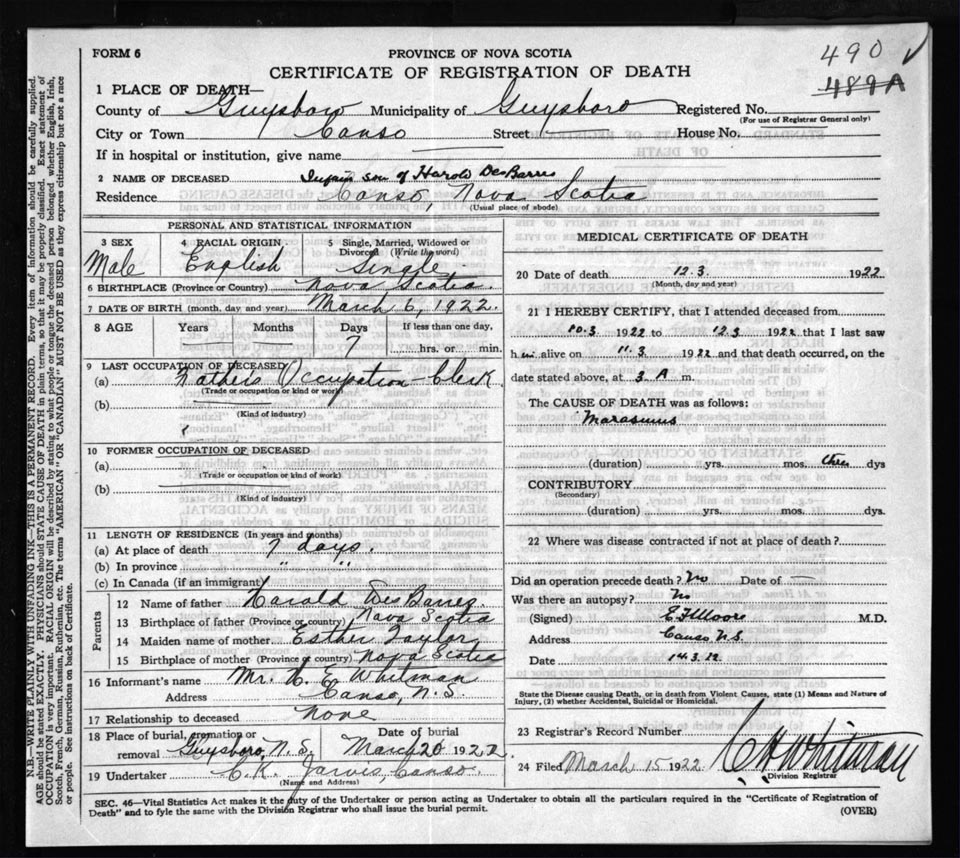 490 ✓
FORM 6
PROVINCE OF NOVA SCOTIA
489A
CERTIFICATE OF REGISTRATION OF DEATH
1 PLACE OF DEATH—
County of Guysboro Municipality of Guysboro Registered No.
(For use of Registrar General only)
City or Town Canso Street House No.
If in hospital or institution, give name
2 NAME OF DECEASED Infain son of Harold DesBarres
Residence Canso, Nova Scotia
(Usual place of abode)
PERSONAL AND STATISTICAL INFORMATION
3 SEX 4 RACIAL ORIGIN 5 Single, Married, Widowed or
Divorced (Write the word)
Male English Single
6 BIRTHPLACE (Province or Country) Nova Scotia.
7 DATE OF BIRTH (month, day and year) March 6, 1922.
8 AGE Years Months Days If less than one day,
7 hrs. or min.
9 LAST OCCUPATION OF DECEASED
(a) Fathers Occupation - Clerk
(Trade or occupation or kind or work)
(b)
(Kind of industry)
10 FORMER OCCUPATION OF DECEASED
(a)
(Trade or occupation or kind of work)
(b)
(Kind of industry)
11 LENGTH OF RESIDENCE (In years and months)
(a) At place of death 7 days.
(b) In province " "
(c) In Canada (if an immigrant)
Parents
12 Name of father Harold DesBarres
13 Birthplace of father (Province or country) Nova Scotia
14 Maiden name of mother Esther Taylor
15 Birthplace of mother (Province or country) Nova Scotia
16 Informant's name Mr. C. E. Whitman
Address Canso, N.S.
17 Relationship to deceased None
18 Place of burial, cremation or Date of burial
removal Guysboro, N.S. March 20 1922
19 Undertaker C.K. Jarvis, Canso.
(Name and Address)
MEDICAL CERTIFICATE OF DEATH
20 Date of death 12.3. 1922
(Month, day and year)
21 I HEREBY CERTIFY, that I attended deceased from
10.3 1922 to 12.3 1922 that I last saw
him alive on 11.3 1922 and that death occurred, on the
date stated above, at 3 A m.
The CAUSE OF DEATH was as follows:
Marasmus
(duration) yrs. mos. three dys
CONTRIBUTORY
(Secondary)
(duration) yrs. mos. dys.
22 Where was disease contracted if not at place of death?
Did an operation precede death? No Date of —
Was there an autopsy? No
(Signed) E F Moore M.D.
Address Canso N.S.
Date 14.3.22
State the Disease causing Death, or in death from Violent Causes, state (1) Means and Nature of
Injury, (2) whether Accidental, Suicidal or Homicidal.
23 Registrar's Record Number
24 Filed March 15 1922 C H Whitman
Division Registrar
SEC. 46—Vital Statistics Act makes it the duty of the Undertaker or person acting as Undertaker to obtain all the particulars required in the "Certificate of Registration of
Death" and to fyle the same with the Division Registrar who shall issue the burial permit.
(OVER)
N.B.—WRITE PLAINLY WITH UNFADING INK—THIS IS A PERMANENT RECORD. Every item of information should be carefully supplied.
AGE should be stated EXACTLY. PHYSICIANS should STATE CAUSE OF DEATH in plain terms, so that it may be properly classified. Exact statement of
OCCUPATION is very important. RACIAL ORIGIN will be described by stating to what people or tongue the deceased person belonged whether English, Irish,
Scotch, French, German, Russian, Ruthenian, etc. The terms "AMERICAN" OR "CANADIAN" MUST NOT BE USED as they express citizenship but not a race
or people. See instructions on back of Certificate.